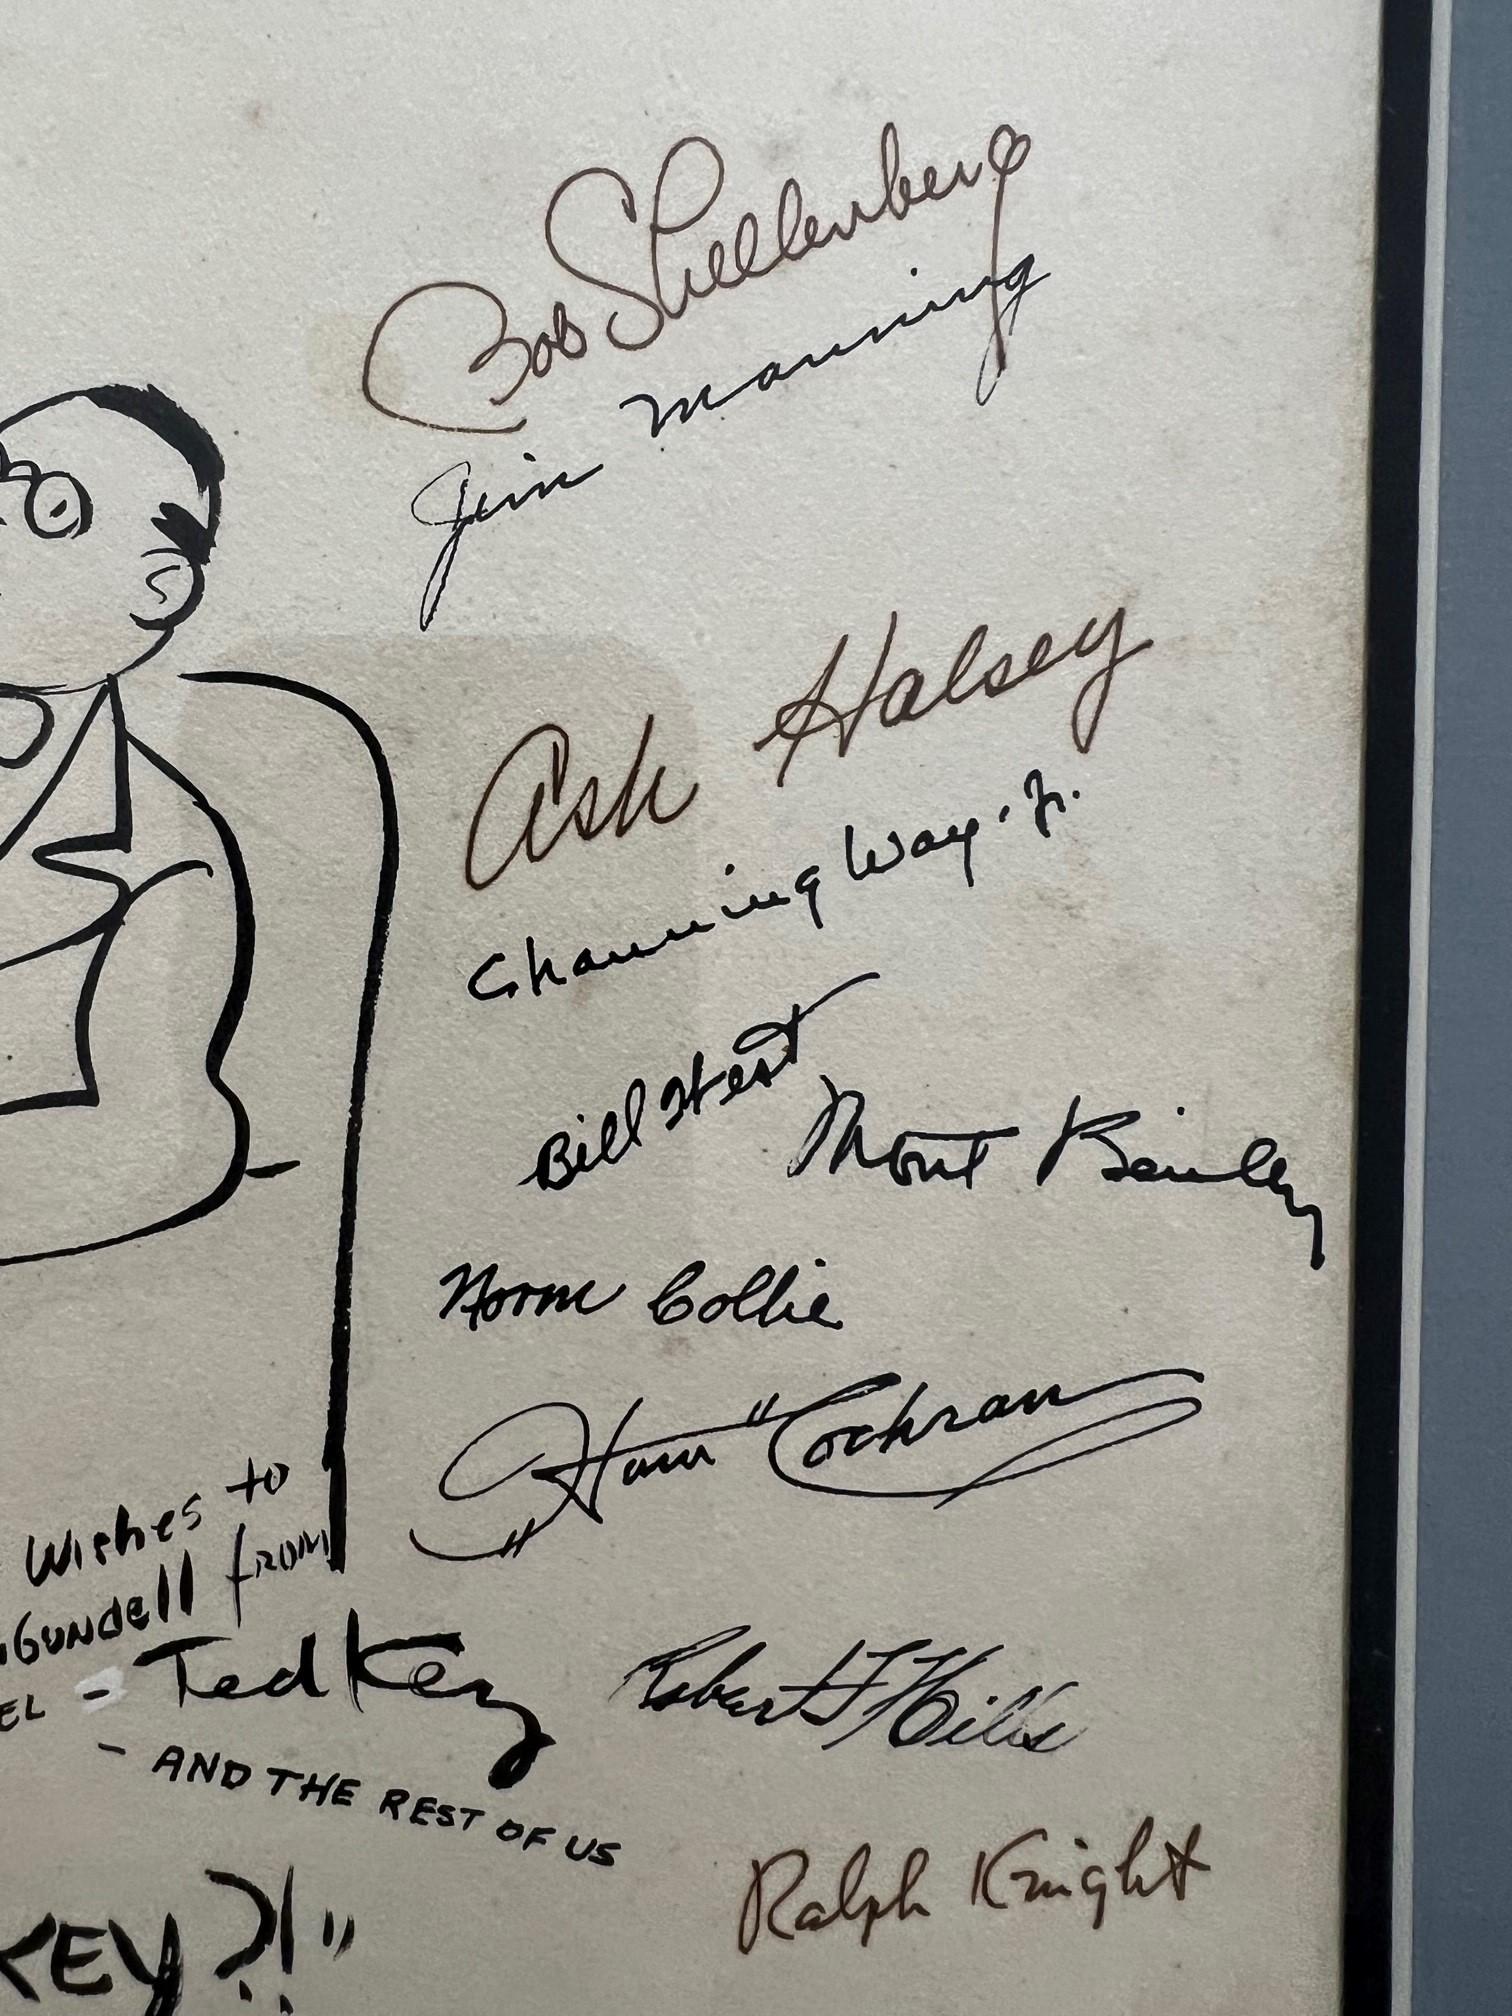 Bob Shellenberg
Jim Manning
Ash Halsey
Channing Way. Jr.
Bill West
Mont Bailey
Norm Collie
"Ham" Cochran
Wishes to
Gundell from
EL - Ted Key
- AND THE REST OF US
Robert F Hills
Ralph Knight
KEY?!"